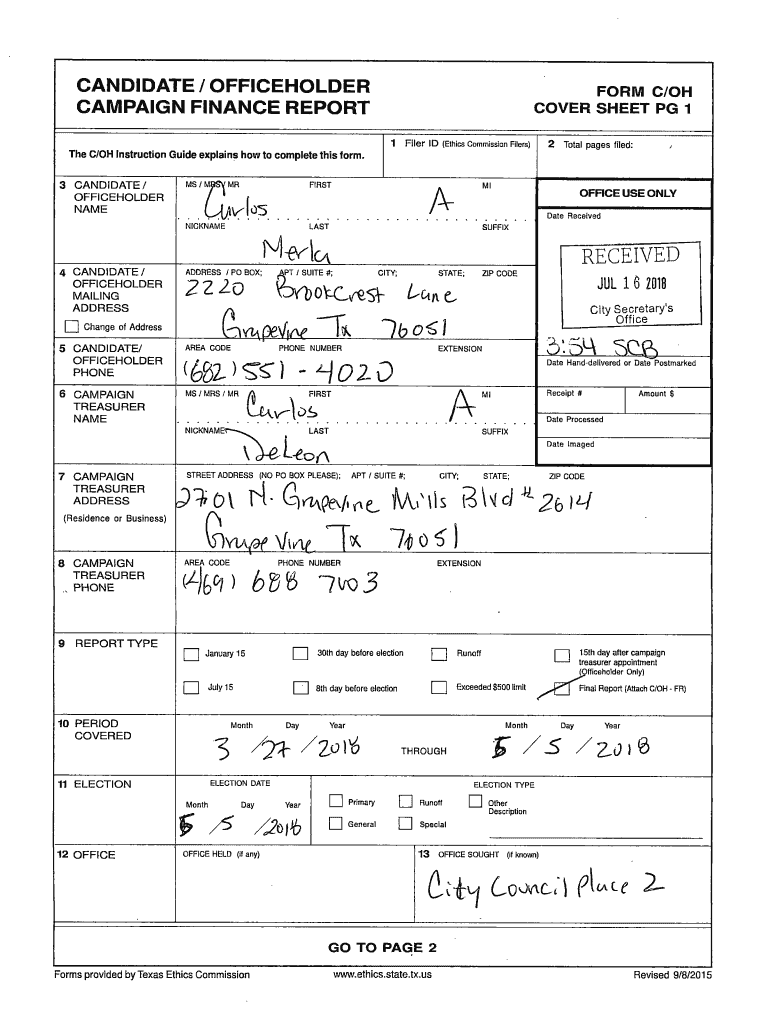 CANDIDATE / OFFICEHOLDER
CAMPAIGN FINANCE REPORT
FORM C/OH
COVER SHEET PG 1
The C/OH Instruction Guide explains how to complete this form.
1 Filer ID (Ethics Commission Filers)
2 Total pages filed:
3 CANDIDATE / OFFICEHOLDER NAME
MS / MRS / MR FIRST MI
Carlos A
NICKNAME LAST SUFFIX
Merla
OFFICE USE ONLY
Date Received
RECEIVED
JUL 16 2018
City Secretary's
Office
3:54 SCB
Date Hand-delivered or Date Postmarked
4 CANDIDATE / OFFICEHOLDER MAILING ADDRESS
Change of Address
ADDRESS / PO BOX; APT / SUITE #; CITY; STATE; ZIP CODE
2220 Brookcrest Lane
Grapevine Tx 76051
5 CANDIDATE/ OFFICEHOLDER PHONE
AREA CODE PHONE NUMBER EXTENSION
(682) 551-4020
6 CAMPAIGN TREASURER NAME
MS / MRS / MR FIRST MI
Carlos A
NICKNAME LAST SUFFIX
DeLeon
Receipt # Amount $
Date Processed
Date Imaged
7 CAMPAIGN TREASURER ADDRESS
(Residence or Business)
STREET ADDRESS (NO PO BOX PLEASE); APT / SUITE #; CITY; STATE; ZIP CODE
2701 N. Grapevine Mills Blvd # 2614
Grapevine Tx 76051
8 CAMPAIGN TREASURER PHONE
AREA CODE PHONE NUMBER EXTENSION
(469) 688 7003
9 REPORT TYPE
January 15 30th day before election Runoff 15th day after campaign treasurer appointment (Officeholder Only)
July 15 8th day before election Exceeded $500 limit Final Report (Attach C/OH - FR)
10 PERIOD COVERED
Month Day Year Month Day Year
3 / 27 / 2018 THROUGH 5 / 5 / 2018
11 ELECTION
ELECTION DATE
Month Day Year
5 / 5 / 2018
ELECTION TYPE
Primary Runoff Other Description
General Special
12 OFFICE
OFFICE HELD (if any)
13 OFFICE SOUGHT (if known)
City Council Place 2
GO TO PAGE 2
Forms provided by Texas Ethics Commission www.ethics.state.tx.us Revised 9/8/2015